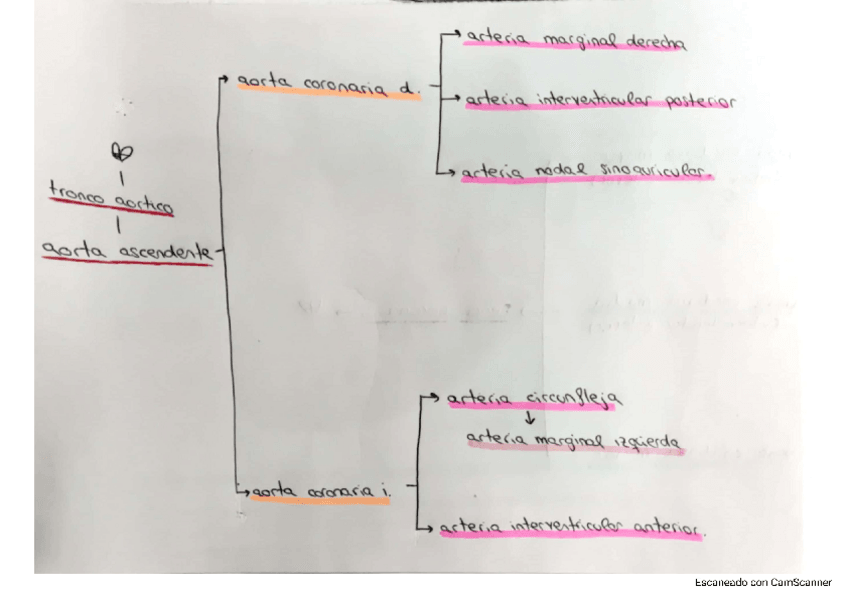 arteria marginal derecha
aorta coronaria d.
arteria interventricular posterior
arteria nodal sinoauricular.
tronco aortico
aorta ascendente
arteria circunfleja
arteria marginal izquierda
aorta coronaria i.
arteria interventricular anterior.
Escaneado con CamScanner